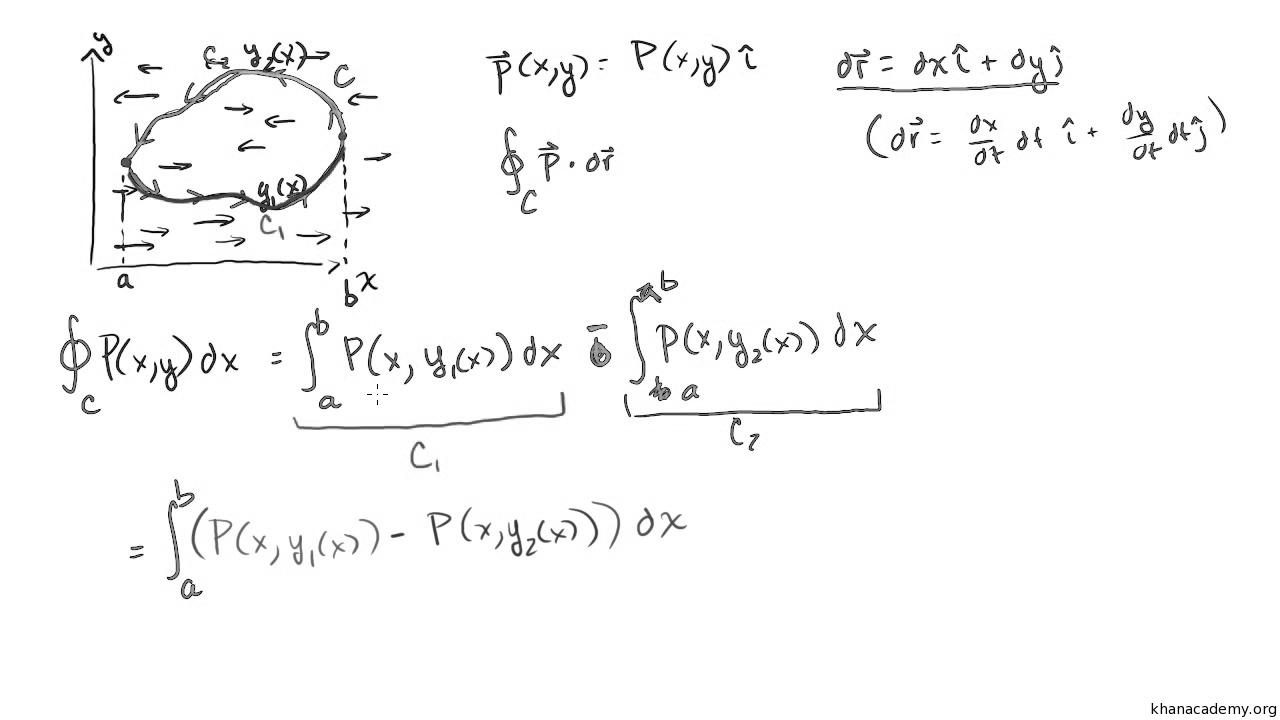 y
C₂ y₂(x)
C
y₁(x)
C₁
a
b x
P⃗(x,y) = P(x,y) î
∮_C P⃗ · dr⃗
dr⃗ = dx î + dy ĵ
(dr⃗ = dx/dt dt î + dy/dt dt ĵ)
∮_C P(x,y) dx = ∫_a^b P(x, y₁(x)) dx − ∫_a^b P(x, y₂(x)) dx
C₁
C₂
= ∫_a^b (P(x, y₁(x)) - P(x, y₂(x))) dx
khanacademy.org